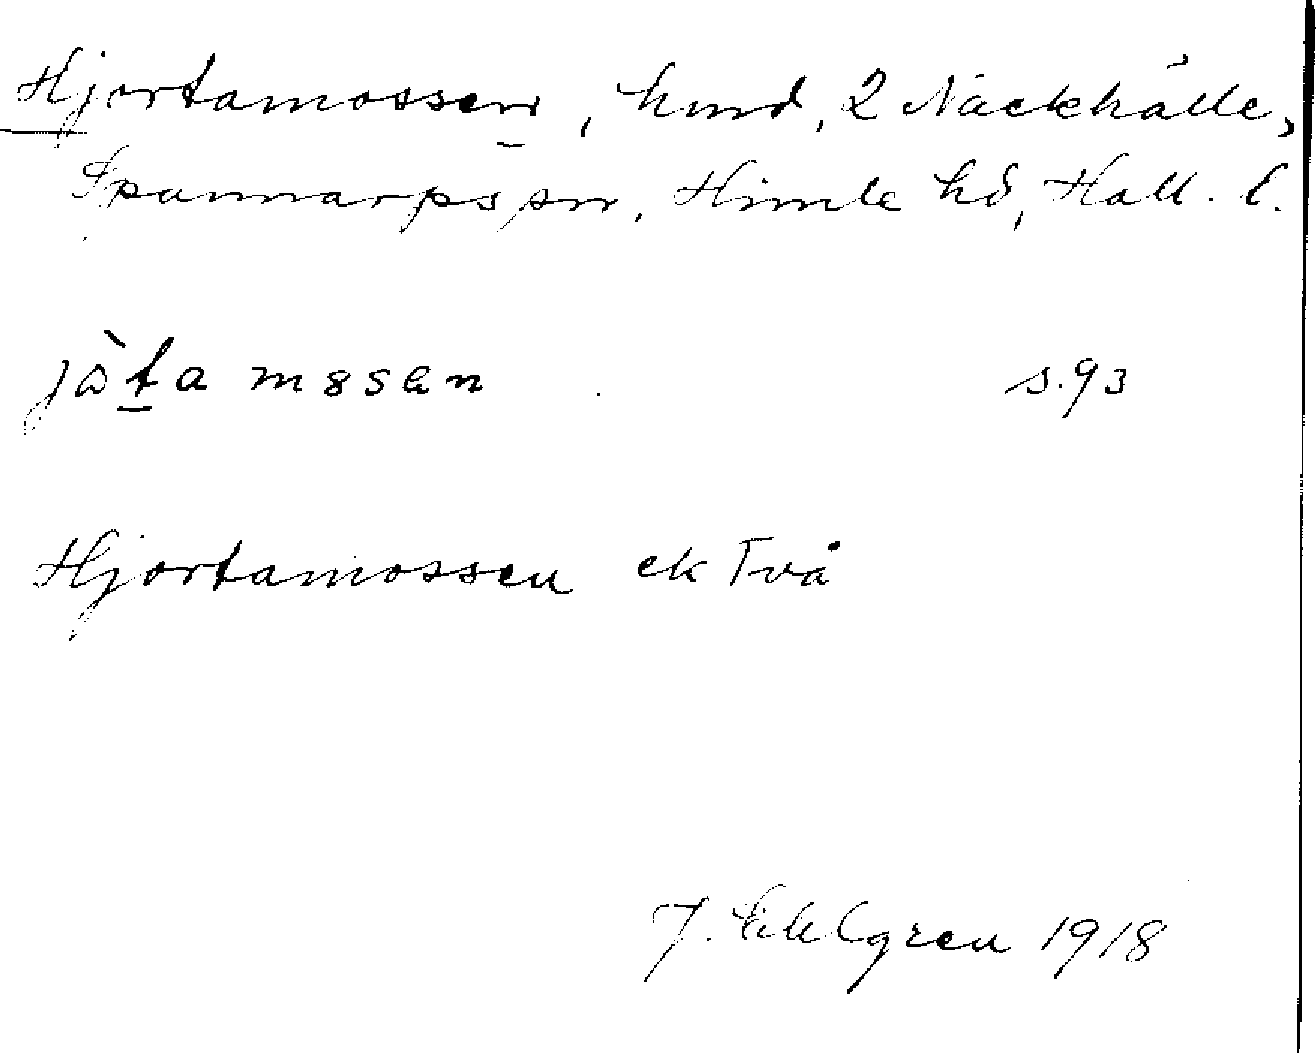 Hjortamossen, hmd, 2 Näckhälle,
Spannarps sn, Himle hd, Hall. l.
jòta mssen s. 93
Hjortamossen ek Två
J. Sahlgren 1918